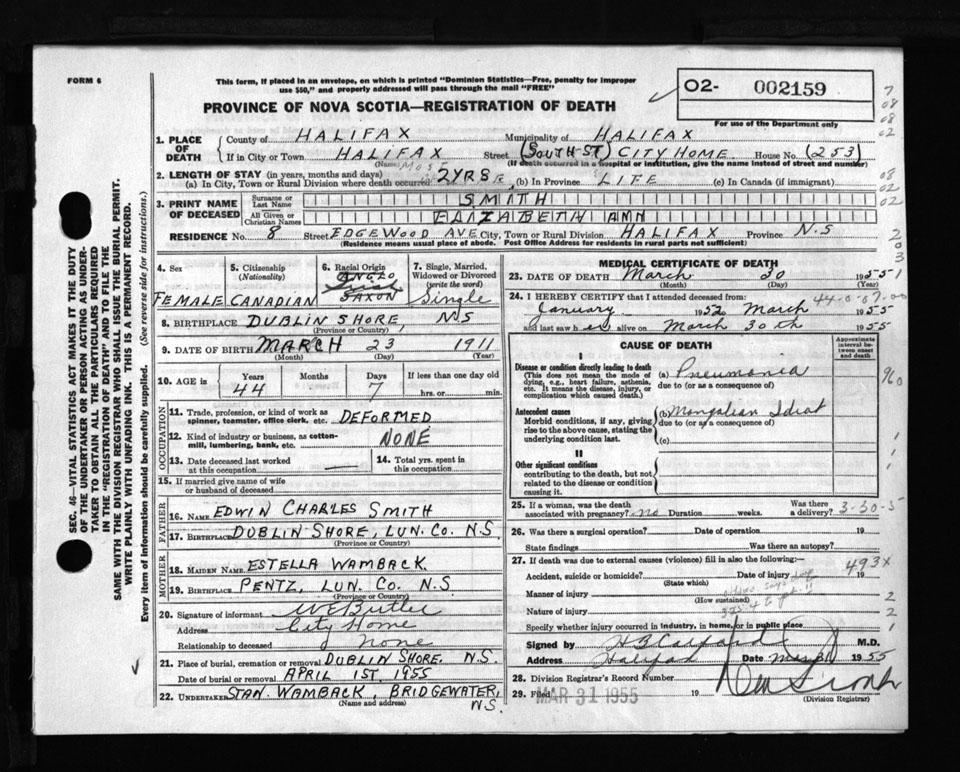 FORM 6
This form, if placed in an envelope, on which is printed "Dominion Statistics—Free, penalty for improper
use $50," and properly addressed will pass through the mail "FREE"
PROVINCE OF NOVA SCOTIA—REGISTRATION OF DEATH
O2- 002159
For use of the Department only
SEC. 46—VITAL STATISTICS ACT MAKES IT THE DUTY
OF THE UNDERTAKER OR PERSON ACTING AS UNDER-
TAKER TO OBTAIN ALL THE PARTICULARS REQUIRED
IN THE "REGISTRATION OF DEATH" AND TO FILE THE
SAME WITH THE DIVISION REGISTRAR WHO SHALL ISSUE THE BURIAL PERMIT.
WRITE PLAINLY WITH UNFADING INK. THIS IS A PERMANENT RECORD.
Every item of information should be carefully supplied. (See reverse side for instructions.)
1. PLACE OF DEATH
County of HALIFAX Municipality of HALIFAX
If in City or Town HALIFAX Street (SOUTH ST) CITY HOME House No. (253)
(Name) (If death occurred in a hospital or institution, give the name instead of street and number)
2. LENGTH OF STAY (in years, months and days)
(a) In City, Town or Rural Division where death occurred 2YRS (b) In Province LIFE (c) In Canada (if immigrant)
3. PRINT NAME OF DECEASED
Surname or Last Name SMITH
All Given or Christian Names ELIZABETH ANN
RESIDENCE No. 8 Street EDGEWOOD AVE City, Town or Rural Division HALIFAX Province N.S
(Residence means usual place of abode. Post Office Address for residents in rural parts not sufficient)
4. Sex FEMALE
5. Citizenship (Nationality) CANADIAN
6. Racial Origin ANGLO SAXON
7. Single, Married, Widowed or Divorced (write the word) Single
8. BIRTHPLACE DUBLIN SHORE, NS
(Province or Country)
9. DATE OF BIRTH MARCH 23 1911
(Month) (Day) (Year)
10. AGE in Years Months Days If less than one day old
44 7 hrs. or min.
OCCUPATION
11. Trade, profession, or kind of work as
spinner, teamster, office clerk, etc. DEFORMED
12. Kind of industry or business, as cotton-
mill, lumbering, bank, etc. NONE
13. Date deceased last worked
at this occupation —
14. Total yrs. spent in
this occupation
15. If married give name of wife
or husband of deceased
FATHER
16. NAME EDWIN CHARLES SMITH
17. BIRTHPLACE DUBLIN SHORE, LUN. CO. N.S
(Province or Country)
MOTHER
18. MAIDEN NAME ESTELLA WAMBACK.
19. BIRTHPLACE PENTZ, LUN. CO. N.S
(Province or Country)
20. Signature of informant W E Butler
Address City Home
Relationship to deceased none
21. Place of burial, cremation or removal DUBLIN SHORE, N.S.
Date of burial or removal APRIL 1ST. 1955
22. UNDERTAKER STAN. WAMBACK, BRIDGEWATER, N.S.
(Name and address)
MEDICAL CERTIFICATE OF DEATH
23. DATE OF DEATH March 30 1955
(Month) (Day)
24. I HEREBY CERTIFY that I attended deceased from:
January 1952 March 1955
and last saw her alive on March 30th 1955
CAUSE OF DEATH
Approximate interval between onset and death
I
Disease or condition directly leading to death
(This does not mean the mode of dying, e.g., heart failure, asthenia, etc. It means the disease, injury, or complication which caused death.)
(a) Pneumonia
due to (or as a consequence of)
Antecedent causes
Morbid conditions, if any, giving rise to the above cause, stating the underlying condition last.
(b) Mongolian Idiot
due to (or as a consequence of)
(c)
II
Other significant conditions
contributing to the death, but not related to the disease or condition causing it.
25. If a woman, was the death
associated with pregnancy? no Duration weeks. Was there a delivery? 3-30-5
26. Was there a surgical operation? Date of operation 19
State findings Was there an autopsy?
27. If death was due to external causes (violence) fill in also the following:— 493X
Accident, suicide or homicide? (State which) Date of injury 19
Manner of injury
(How sustained)
Nature of injury
Specify whether injury occurred in industry, in home, or in public place
Signed by M.D.
Address Halifax Date 1955
28. Division Registrar's Record Number
29. Filed MAR 31 1955 19
(Division Registrar)